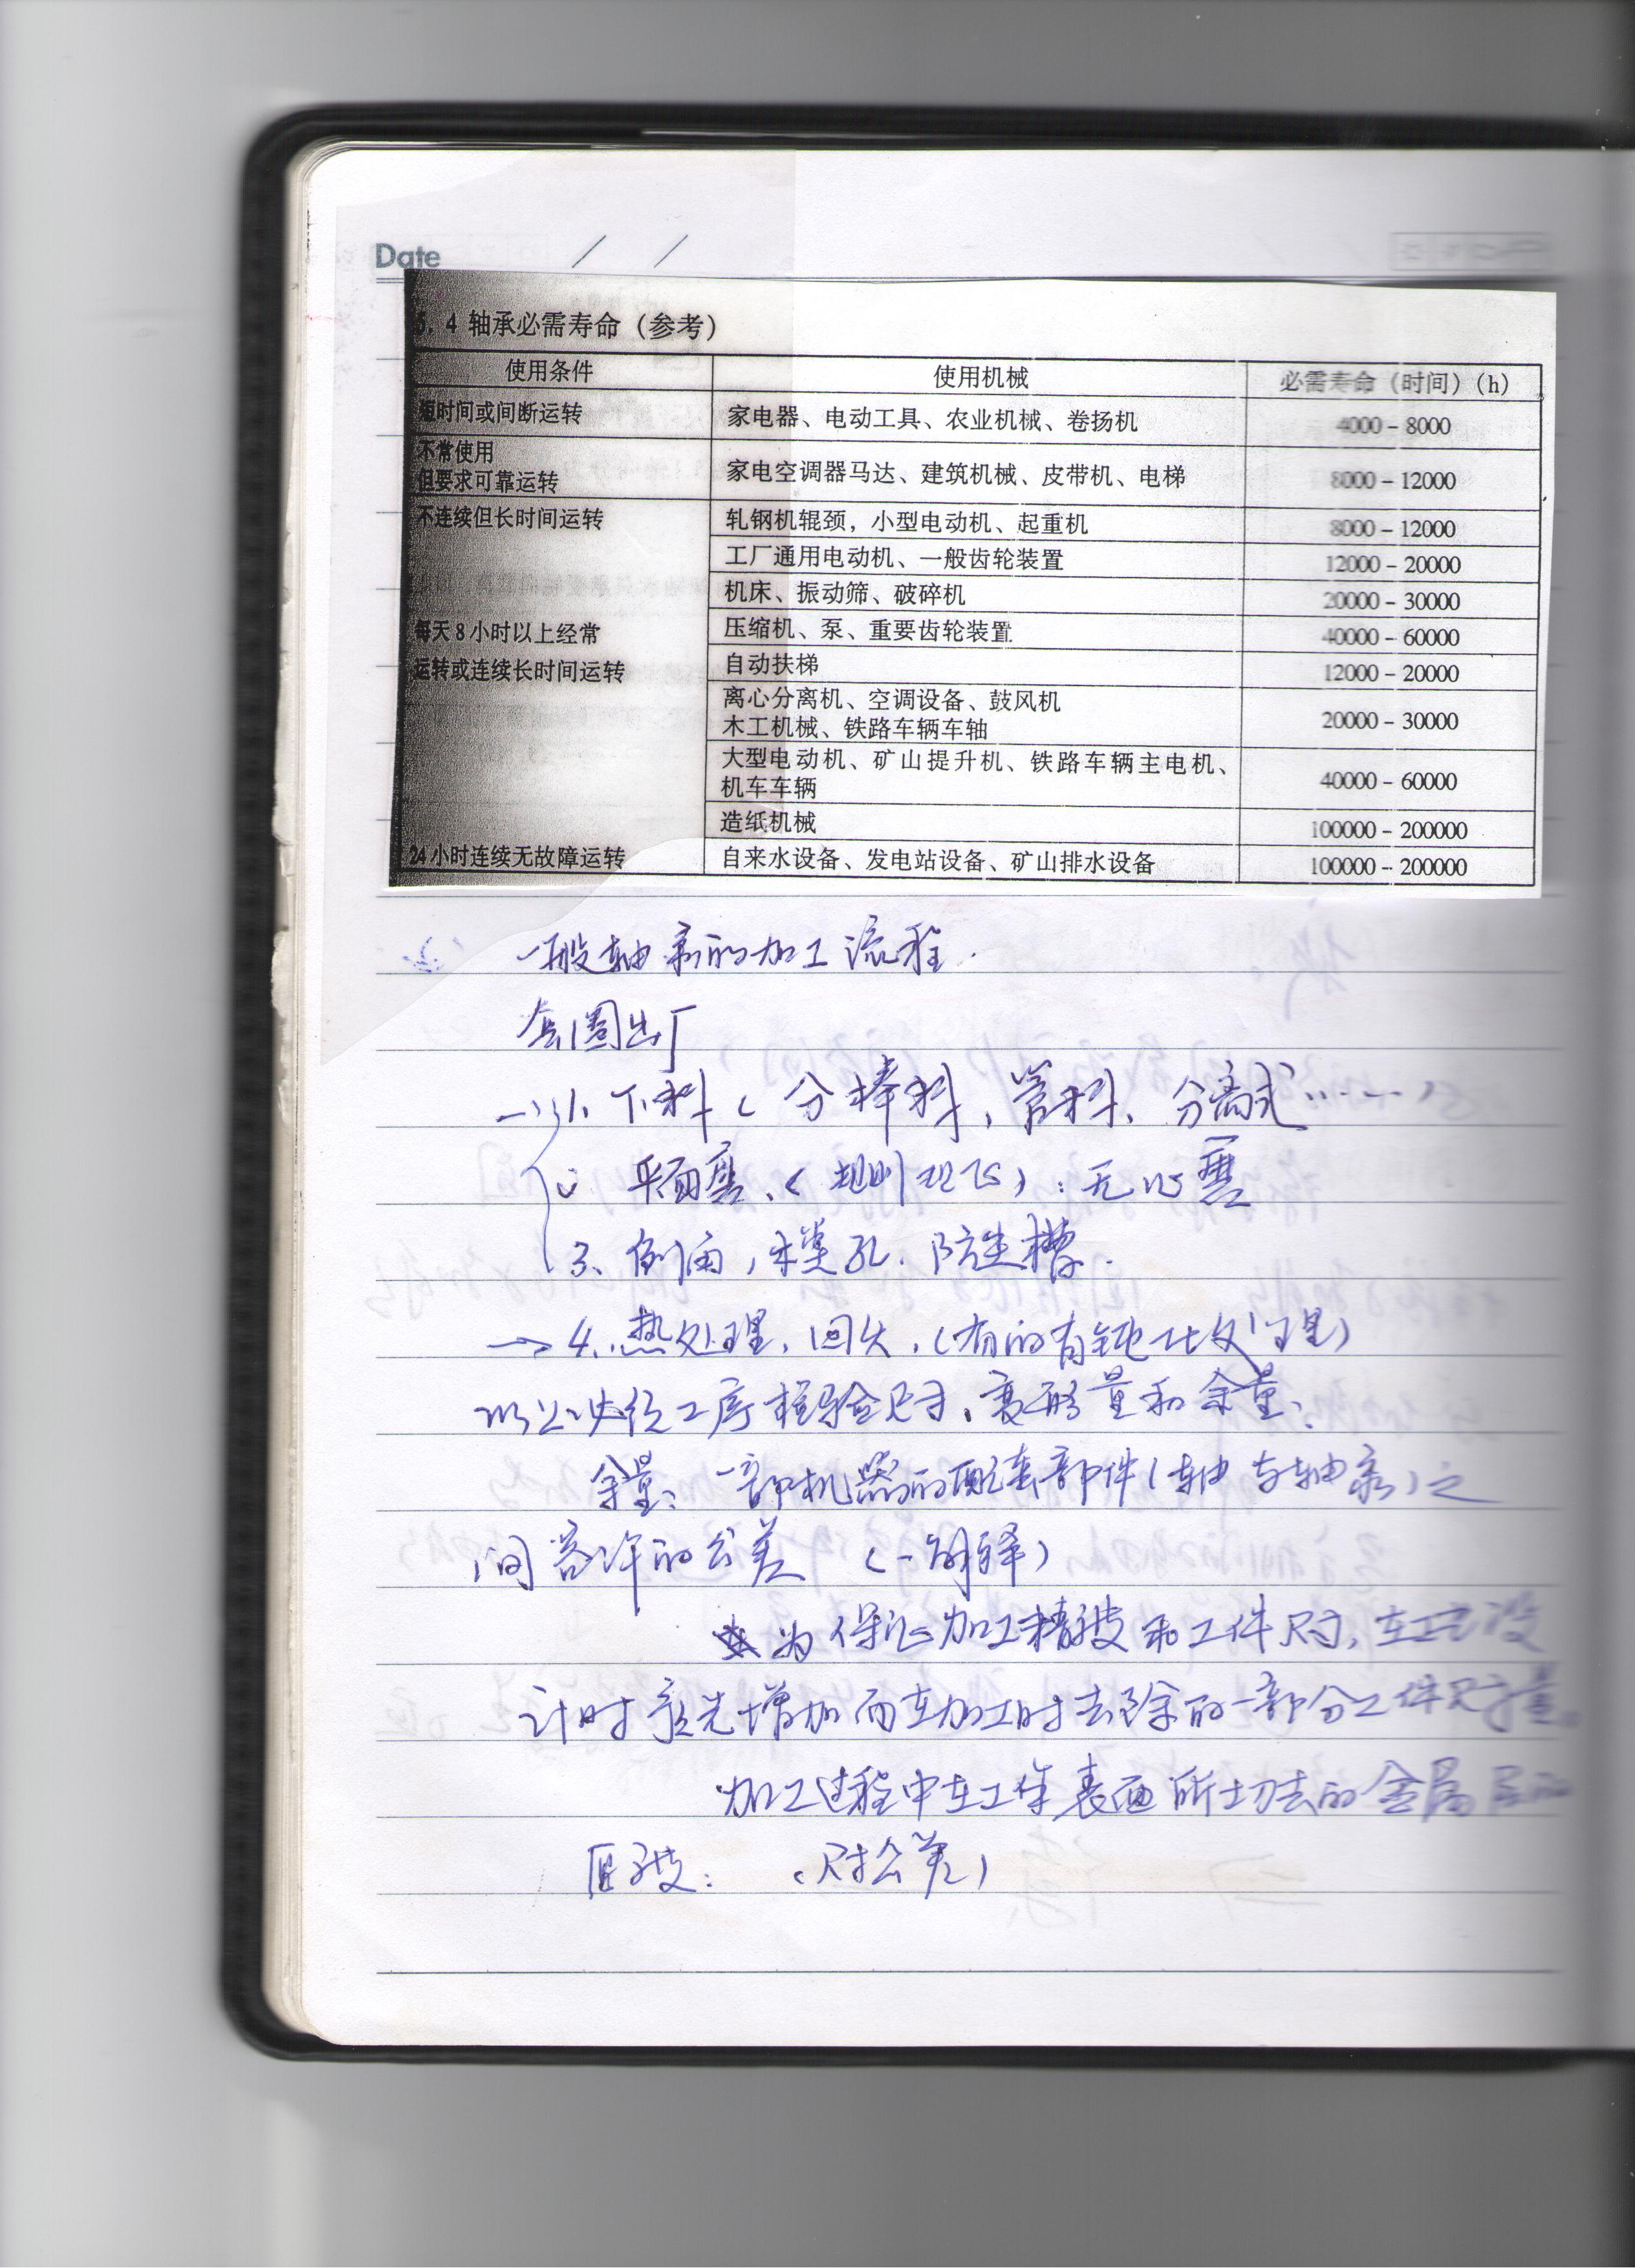 Date / /
5.4 轴承必需寿命（参考）
使用条件 使用机械 必需寿命（时间）(h)
短时间或间断运转 家电器、电动工具、农业机械、卷扬机 4000－8000
不常使用
但要求可靠运转 家电空调器马达、建筑机械、皮带机、电梯 8000－12000
不连续但长时间运转 轧钢机辊颈，小型电动机、起重机 8000－12000
工厂通用电动机、一般齿轮装置 12000－20000
机床、振动筛、破碎机 20000－30000
每天8小时以上经常 压缩机、泵、重要齿轮装置 40000－60000
运转或连续长时间运转 自动扶梯 12000－20000
离心分离机、空调设备、鼓风机
木工机械、铁路车辆车轴 20000－30000
大型电动机、矿山提升机、铁路车辆主电机、
机车车辆 40000－60000
造纸机械 100000－200000
24小时连续无故障运转 自来水设备、发电站设备、矿山排水设备 100000－200000
一般轴承的加工流程.
套圈出厂
→ 1、下料（分棒料、管料、分离式……）
2 平面磨、( ) : 无心磨
3、倒角, 孔. 防尘槽.
→ 4、热处理, 回火,（有的有钝化处理）
以上 工序检验尺寸、变形量和余量:
余量: 一部机器的配套部件（轴与轴承）之
间容许的公差 （一解释）
为保证加工精度和工件尺寸, 在工艺设
计时预先增加而在加工时去除的一部分工件尺寸量。
加工过程中在工件表面所切去的金属层的
厚度: （尺寸公差）